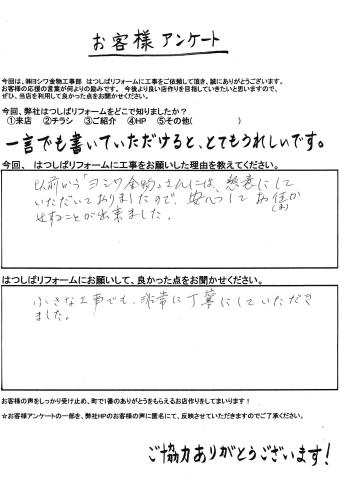 お客様 アンケート
今回は、㈱ヨシワ金物工事部　はつしばリフォームに工事をご依頼して頂き、誠にありがとうございます。
お客様の応援の言葉が何よりの励みです。 今後より良い店作りを目指していきたいと思いますので、
ぜひ、当店を利用して良かった点をお聞かせください。
今回、弊社はつしばリフォームをどこで知りましたか？
①来店　②チラシ　③ご紹介　④HP　⑤その他(　　　　　)
一言でも書いていただけると、とてもうれしいです。
今回、　はつしばリフォームに工事をお願いした理由を教えてください。
以前から「ヨシワ金物」さんには、懇意にして
いただいておりましたので、安心してお任か
(ま)
せすることが出来ました。
はつしばリフォームにお願いして、良かった点をお聞かせください。
小さな工事でも、非常に丁寧にしていただき
ました。
お客様の声をしっかり受け止め、町で1番のありがとうをもらえるお店作りをしてまいります！
☆お客様アンケートの一部を、弊社HPのお客様の声に匿名にて、反映させていただきますのでご了承ください。
ご協力ありがとうございます！